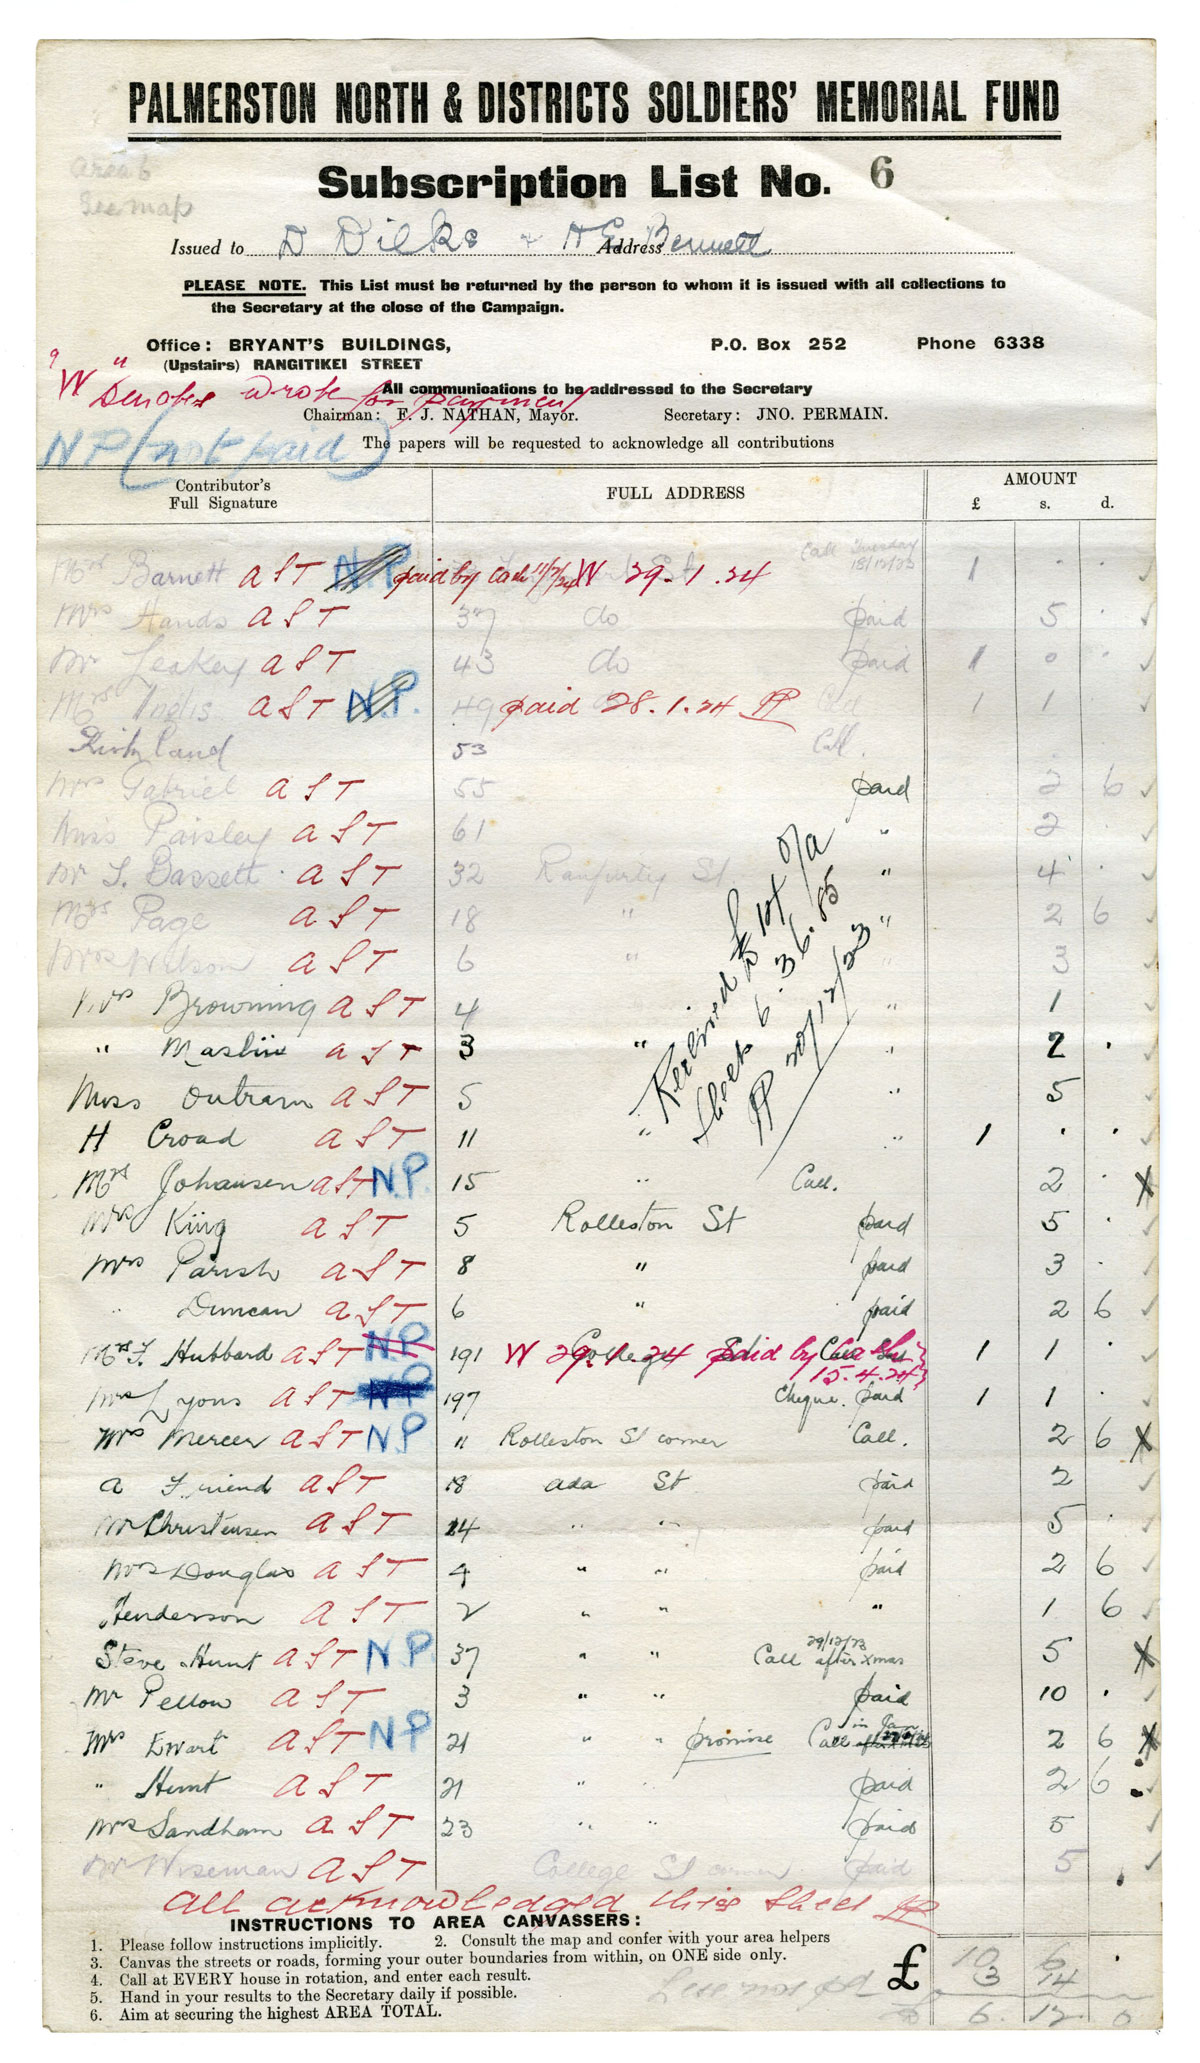 PALMERSTON NORTH & DISTRICTS SOLDIERS' MEMORIAL FUND
Subscription List No. 6
Area 6
See map
Issued to D Dilks & H E Address Bennett
PLEASE NOTE. This List must be returned by the person to whom it is issued with all collections to
the Secretary at the close of the Campaign.
Office: BRYANT'S BUILDINGS, P.O. Box 252 Phone 6338
(Upstairs) RANGITIKEI STREET
All communications to be addressed to the Secretary
"W" Denotes wrote for payment
Chairman: F. J. NATHAN, Mayor. Secretary: JNO. PERMAIN.
NP (not paid)
The papers will be requested to acknowledge all contributions
Contributor's Full Signature FULL ADDRESS AMOUNT £ s. d.
Barnett A S T N.P. paid by Cash 11/2/24 W 29.1.24 Call Tuesday 18/12/23 1 . .
Mrs Hands A S T 37 do paid 5 .
Mr Leakey A S T 43 do paid 1 0 .
Mrs Inglis A S T N.P. 49 paid 28.1.24 JP 1 1 .
Kirkland 53 Call.
Mrs Gabriel A S T 55 paid 2 6
Miss Paisley A S T 61 " 2 .
Mr T. Bassett A S T 32 Ranfurly St " 4 .
Mrs Page A S T 18 " " 2 6
Mrs Wilson A S T 6 " " 3
Mrs Browning A S T 4 " 1
" Maslin A S T 3 " " 2 .
Miss Outram A S T 5 " " 5
H Croad A S T 11 " " 1 . .
Received £10/ o/a
6.36.85
JP 20/12/23
Mrs Johansen A S T N.P. 15 " Call. 2 .
Mrs King A S T 5 Rolleston St paid 5 .
Mrs Parish A S T 8 " paid 3 .
" Duncan A S T 6 " paid 2 6
Hubbard A S T N.P. 191 W 29.1.24 College paid by 15.4.24 1 1 .
Mrs Lyons A S T NP 197 Cheque. paid 1 1 .
Mrs Mercer A S T N.P 11 Rolleston St corner Call. 2 6
A Friend A S T 18 Ada St paid 2
Mr Christensen A S T 24 " " paid 5 .
Mrs Douglas A S T 4 " " paid 2 6
Henderson A S T 2 " " " 1 6
Steve Hunt A S T N.P. 37 " " 29/12/23 Call after Xmas 5
Mr Pellow A S T 3 " " paid 10 .
Mrs Ewart A S T NP 21 " " promise Call in Jan 2 6
" Hunt A S T 21 " " paid 2 6
Mrs Sandham A S T 23 " " paid 5
Mr Wiseman A S T College St corner paid 5 .
All acknowledged this sheet JP
INSTRUCTIONS TO AREA CANVASSERS:
1. Please follow instructions implicitly. 2. Consult the map and confer with your area helpers
3. Canvas the streets or roads, forming your outer boundaries from within, on ONE side only.
4. Call at EVERY house in rotation, and enter each result.
5. Hand in your results to the Secretary daily if possible.
6. Aim at securing the highest AREA TOTAL.
£ 10 6 .
Less not pd 3 14
6. 12. 0